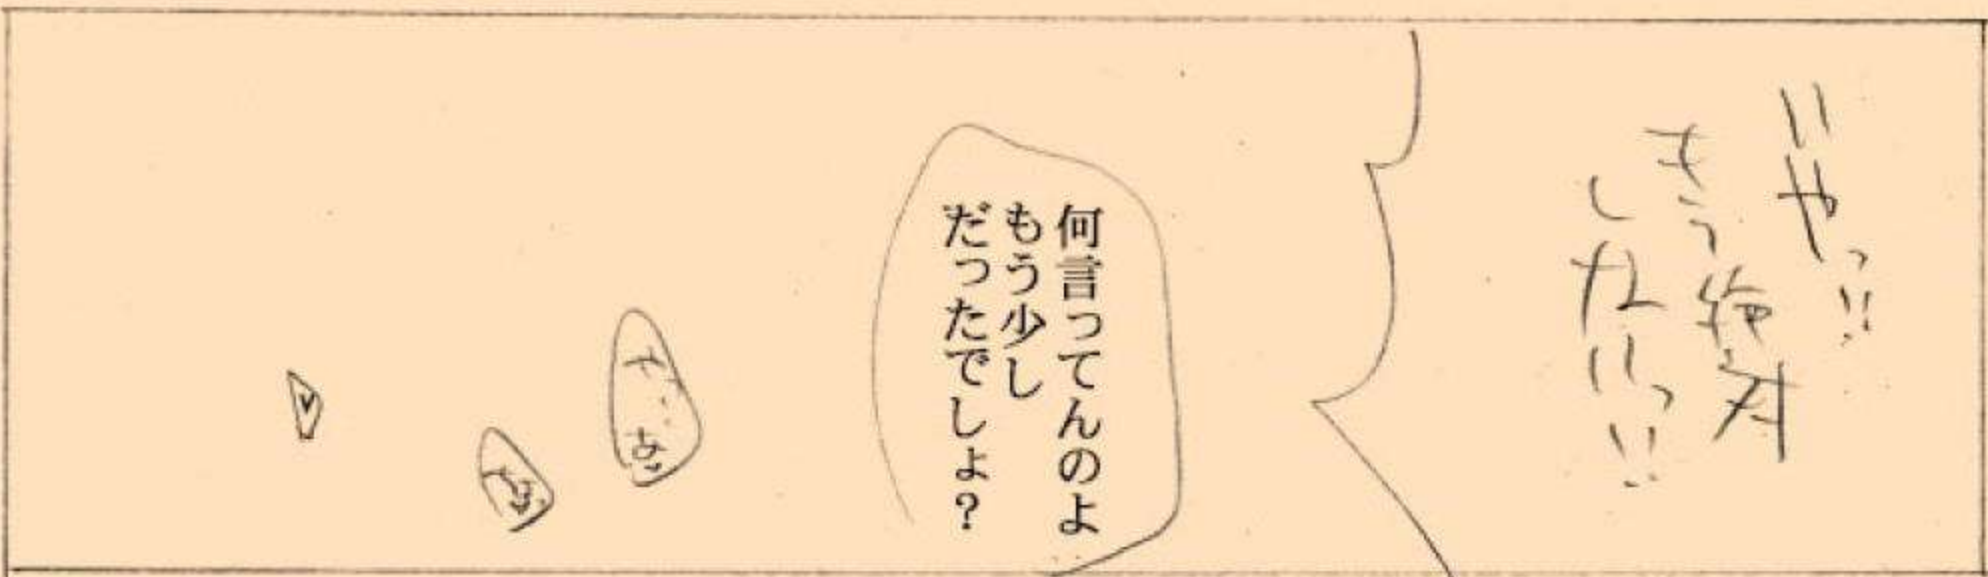 いやっ!!
もう絶対
しないっ!!
何言ってんのよ
もう少し
だったでしょ?